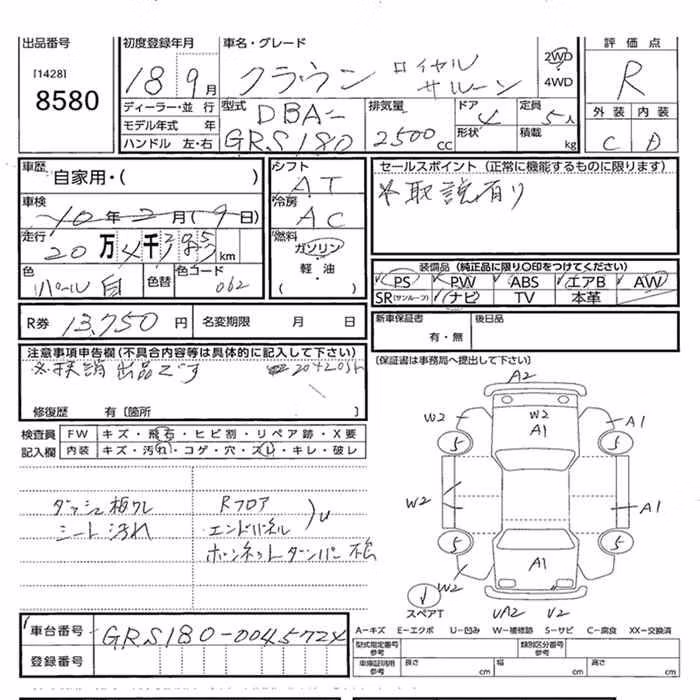 出品番号
[1428]
8580
初度登録年月
18 9月
車名・グレード
クラウン ロイヤル サルーン
2WD
4WD
評価点
R
外装 内装
C D
ディーラー・並行
モデル年式 年
ハンドル 左・右
型式
DBA-
GRS180
排気量
2500 cc
ドア 4
形状
定員 5人
積載 kg
車歴
自家用・( )
車検
10年2月(9日)
走行
20万4千 km
色
パール白
色替
色コード
062
シフト
AT
冷房
AC
燃料
ガソリン・
軽・油
( )
セールスポイント (正常に機能するものに限ります)
※取説有り
装備品 (純正品に限り〇印をつけてください)
PS PW ABS エアB AW
SR(サンルーフ) ナビ TV 本革
R券 13,750 円
名変期限 月 日
新車保証書
有・無
後日品
(保証書は事務局へ提出して下さい)
注意事項申告欄(不具合内容等は具体的に記入して下さい)
出品です
修復歴 有〔箇所 〕
検査員
記入欄
FW キズ・飛石・ヒビ割・リペア跡・X要
内装 キズ・汚れ・コゲ・穴・スレ・キレ・破レ
シート汚れ
Rフロア
エンドパネル
U
A2
W2 W2 A1 A1
5 5
W2 A1
5 5
W2 A1
スペアT
UA2 U2
A-キズ E-エクボ U-凹み W-補修跡 S-サビ C-腐食 XX-交換済
車台番号
GRS180-0045724
登録番号
型式指定番号
参考
類別区分番号
参考
車庫証明用
参考
長さ cm
幅 cm
高さ cm